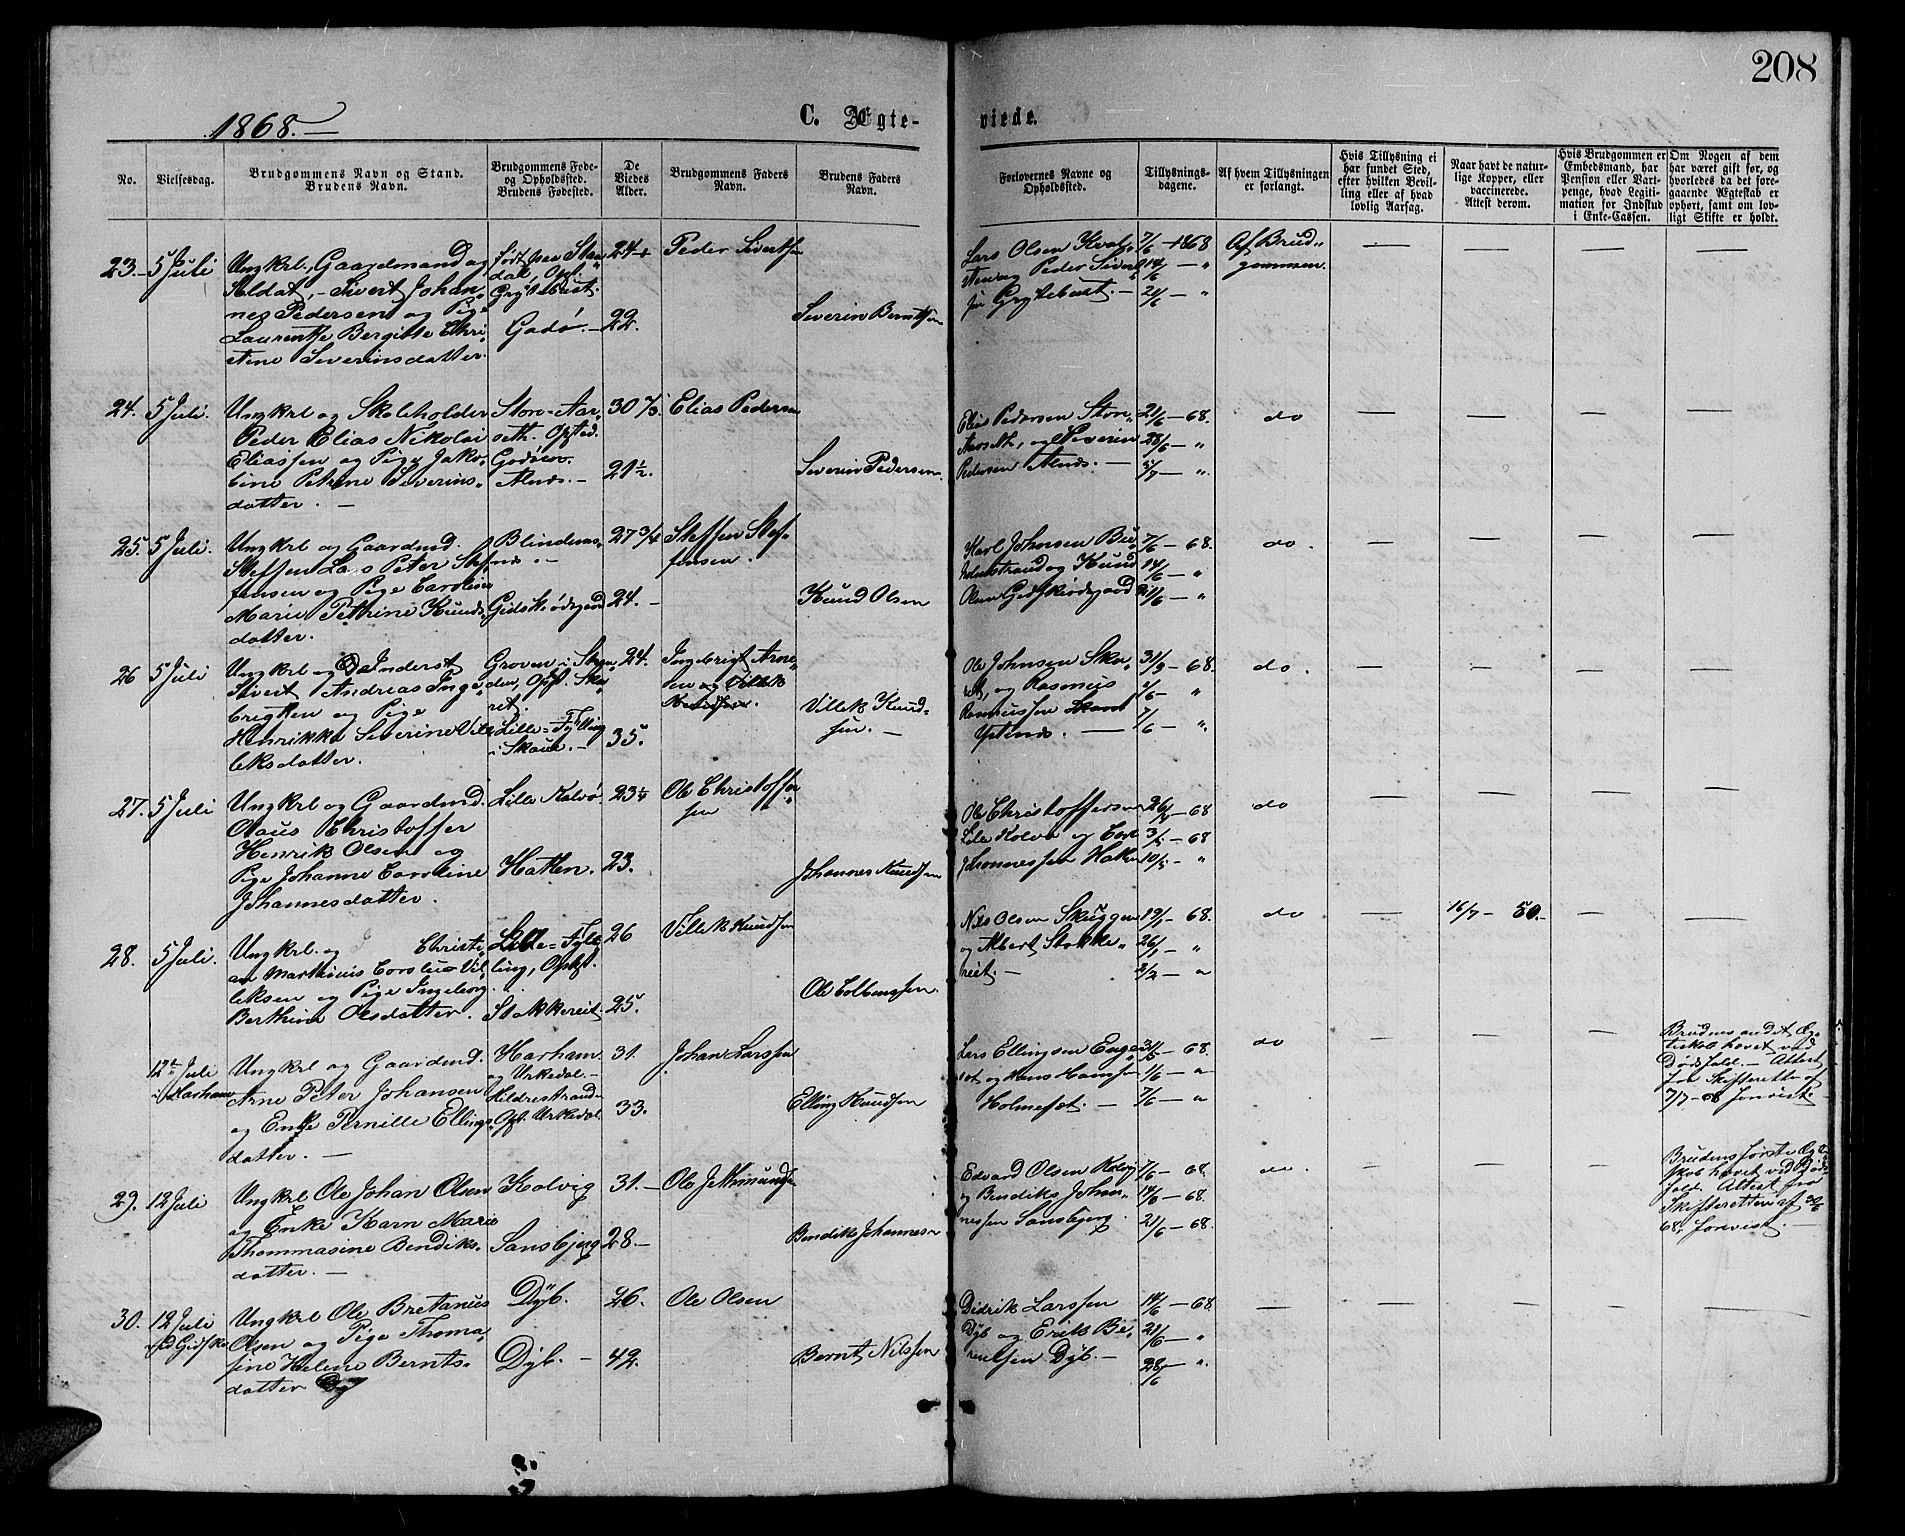 208
1868.—
C. Ægte-
viede.
No.
Vielsesdag.
Brudgommens Navn og Stand.
Brudens Navn.
Brudgommens Føde-
og Opholdssted.
Brudens Fødested.
De
Viedes
Alder.
Brudgommens Faders
Navn.
Brudens Faders
Navn.
Forlovernes Navne og
Opholdssted.
Tillysnings-
dagene.
Af hvem Tillysningen
er forlangt.
Hvis Tillysning ei
har fundet Sted,
efter hvilken Bevil-
ling eller af hvad
lovlig Aarsag.
Naar havt de natur-
lige Kopper, eller
vaccinerede.
Attest derom.
Hvis Brudgommen er
Embedsmand, har
Pension eller Vart-
penge, hvad Legiti-
mation for Indskud
i Enke-Cassen.
Om Nogen af dem
har været gift før, og
hvorledes da det fore-
gaaende Ægteskab er
ophørt, samt om lov-
ligt Skifte er holdt.
23. 5 Juli
Ungkrl., Gaardmand og
Soldat, Sivert Johan-
nes Pedersen og Pige
Laurentse Bergitte Chri-
stine Severinsdatter.
dal, Opt.
Grytebust.
Godø. —
24
22.
Peder Sivertsen
Severin Berntsen
Lars Olsen Kval-
og Peder Sivert-
sen Grytebust. —
7/6 — 1868
14/6 — "
21/6 — "
Af Brud-
gommen.
24. 5 Juli.
Ungkrl og Skoleholder
Peder Elias Nikolai
Eliassen og Pige Jako-
bine Petrine Severins-
datter. —
Store-Aar-
seth. Opsted.
Godøen.
Alnæs. —
30
21½.
Elias Pedersen
Severin Pedersen
Elias Pedersen Store
Aarseth, og Severin
Pedersen Alnæs. —
21/6 — 68.
28/6 — "
5/7 — ".
do
25. 5 Juli.
Ungkrl og Gaardmd.
Steffen Lars Peter Stef-
fensen og Pige Caroline
Marie Pettrine Knuds-
datter.
Blindems-
næs. —
Gidskødegaard
27 3/4
24. —
Steffen Stef-
fensen.
Knud Olsen
Karl Johnsen Bu-
holmstrand og Knud
Olsen Gidskiødegaard
7/6 — 68.
14/6 — "
21/6 — "
do.
26 5 Juli
Ungkrl og Inderst
Sivert Andreas Inge-
brigtsen og Pige
Henrikke Severine Vil-
leksdatter.
Groven i Skaue-
den, Opt. Ska-
ret.
Lille-Fylling
i Skaue. —
24.
35.
Ingebrigt Arne-
sen og Villek
Knudsen.
Villek Knud-
sen. —
Ole Johnsen Ska-
ret, og Rasmus
Rasmussen
Ystenæs. —
31/5 — 68.
1/6 — "
7/6 — ".
do.
27. 5 Juli
Ungkrl og Gaardmd.
Olaus Christoffer
Henrik Olsen og
Pige Johanne Caroline
Johannesdatter.
Lille Kalvø.
Hatlen.
23
23.
Ole Christoffer-
sen
Johannes Knudsen
Ole Christoffersen
Lille Kalvø og
Johannessen
— 68
3/5 — 68
10/5 — "
do
28. 5 Juli.
Ungkrl. og Christi-
an Marthinus Cornelius Vil-
leksen og Pige Ingeborg
Berthine Olsdatter.
Lille-Fyl-
ling, Opt.
Stokkereit.
26
25.
Villek Knudsen
Ole Colbensen.
Nils Olsen Skuggen
og Albert Stokke-
reit. —
19/1 — 68.
26/1 — "
2/2 — "
do
16/7 — 50.
12te Juli
i Harham
Ungkrl og Gaardmd.
Arne Peter Johansen
og Enke Pernille Ellings-
datter. —
Harham
og Urkedal. —
Hildrestrand
Opt. Urkedal.
31.
33.
Johan Larssen
Elling Knudsen
Lars Ellingsen Enge-
set og Hans Hansen
Holmeset. —
31/5 — 68.
1/6 — "
7/6 — "
do
Brudens andet Æg-
teskab hævet ved
Dødsfald. — Attest
fra Skifteretten af
7/7 — 68 forevist. —
29. 12 Juli
Ungkrl Ole Johan Olsen
og Enke Karn Marie
Thommasine Bendiks-
datter. —
Kalvig
Sansbjerg
31. —
28. —
Ole J. Amundsen
Bendik Johannesen
Edvard Olsen Kalvig
og Bendiks Johan-
nessen Sansbjerg.
7/6 — 68.
14/6 — 68.
21/6 — 68.
do.
Brudens første Ægte-
skab hævet ved Døds-
fald. Attest fra
Skifteretten af
68, forevist. —
30. 12 Juli
paa Gidske
Ungkrl Ole Bretanus
Olsen og Pige Thoma-
sine Helene Bernts-
datter
Dyb.
Dyb. —
26.
42.
Ole Olsen
Bernt Nilssen
Didrik Larssen
Dyb og Erik Be-
rentsen Dyb. —
14/6 — 68.
21/6 — "
28/6 — ".